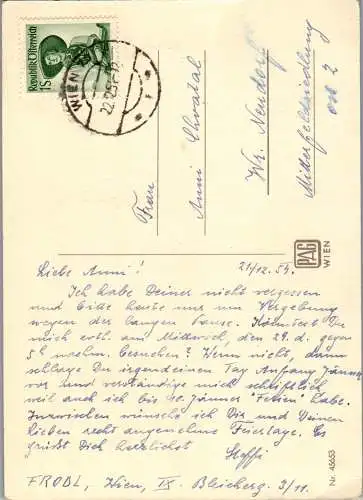 Republik Österreich
1S
WIEN
22.12.54
Frau
Anni Chvatal
Wr. Neudorf
Mitterfeldsiedlung
PAG
WIEN
21/12.54.
Liebe Anni!
Ich habe Deiner nicht vergessen
und bitte heute nur um Vergebung
wegen der langen Pause. Könntest Du
mich evtl. am Mittwoch, den 29. d. gegen
5h nachm. besuchen? Wenn nicht, dann
schlage Du irgendeinen Tag Anfang Jänner
vor und verständige mich schriftlich
weil auch ich bis Jänner "Ferien" habe.
Inzwischen wünsche ich Dir und Deinen
Lieben recht angenehme Feiertage. Es
grüßt Dich herzlichst
Steffi
FROBL, Wien, IX. Bleicherg. 3/11.
Nr. 45653